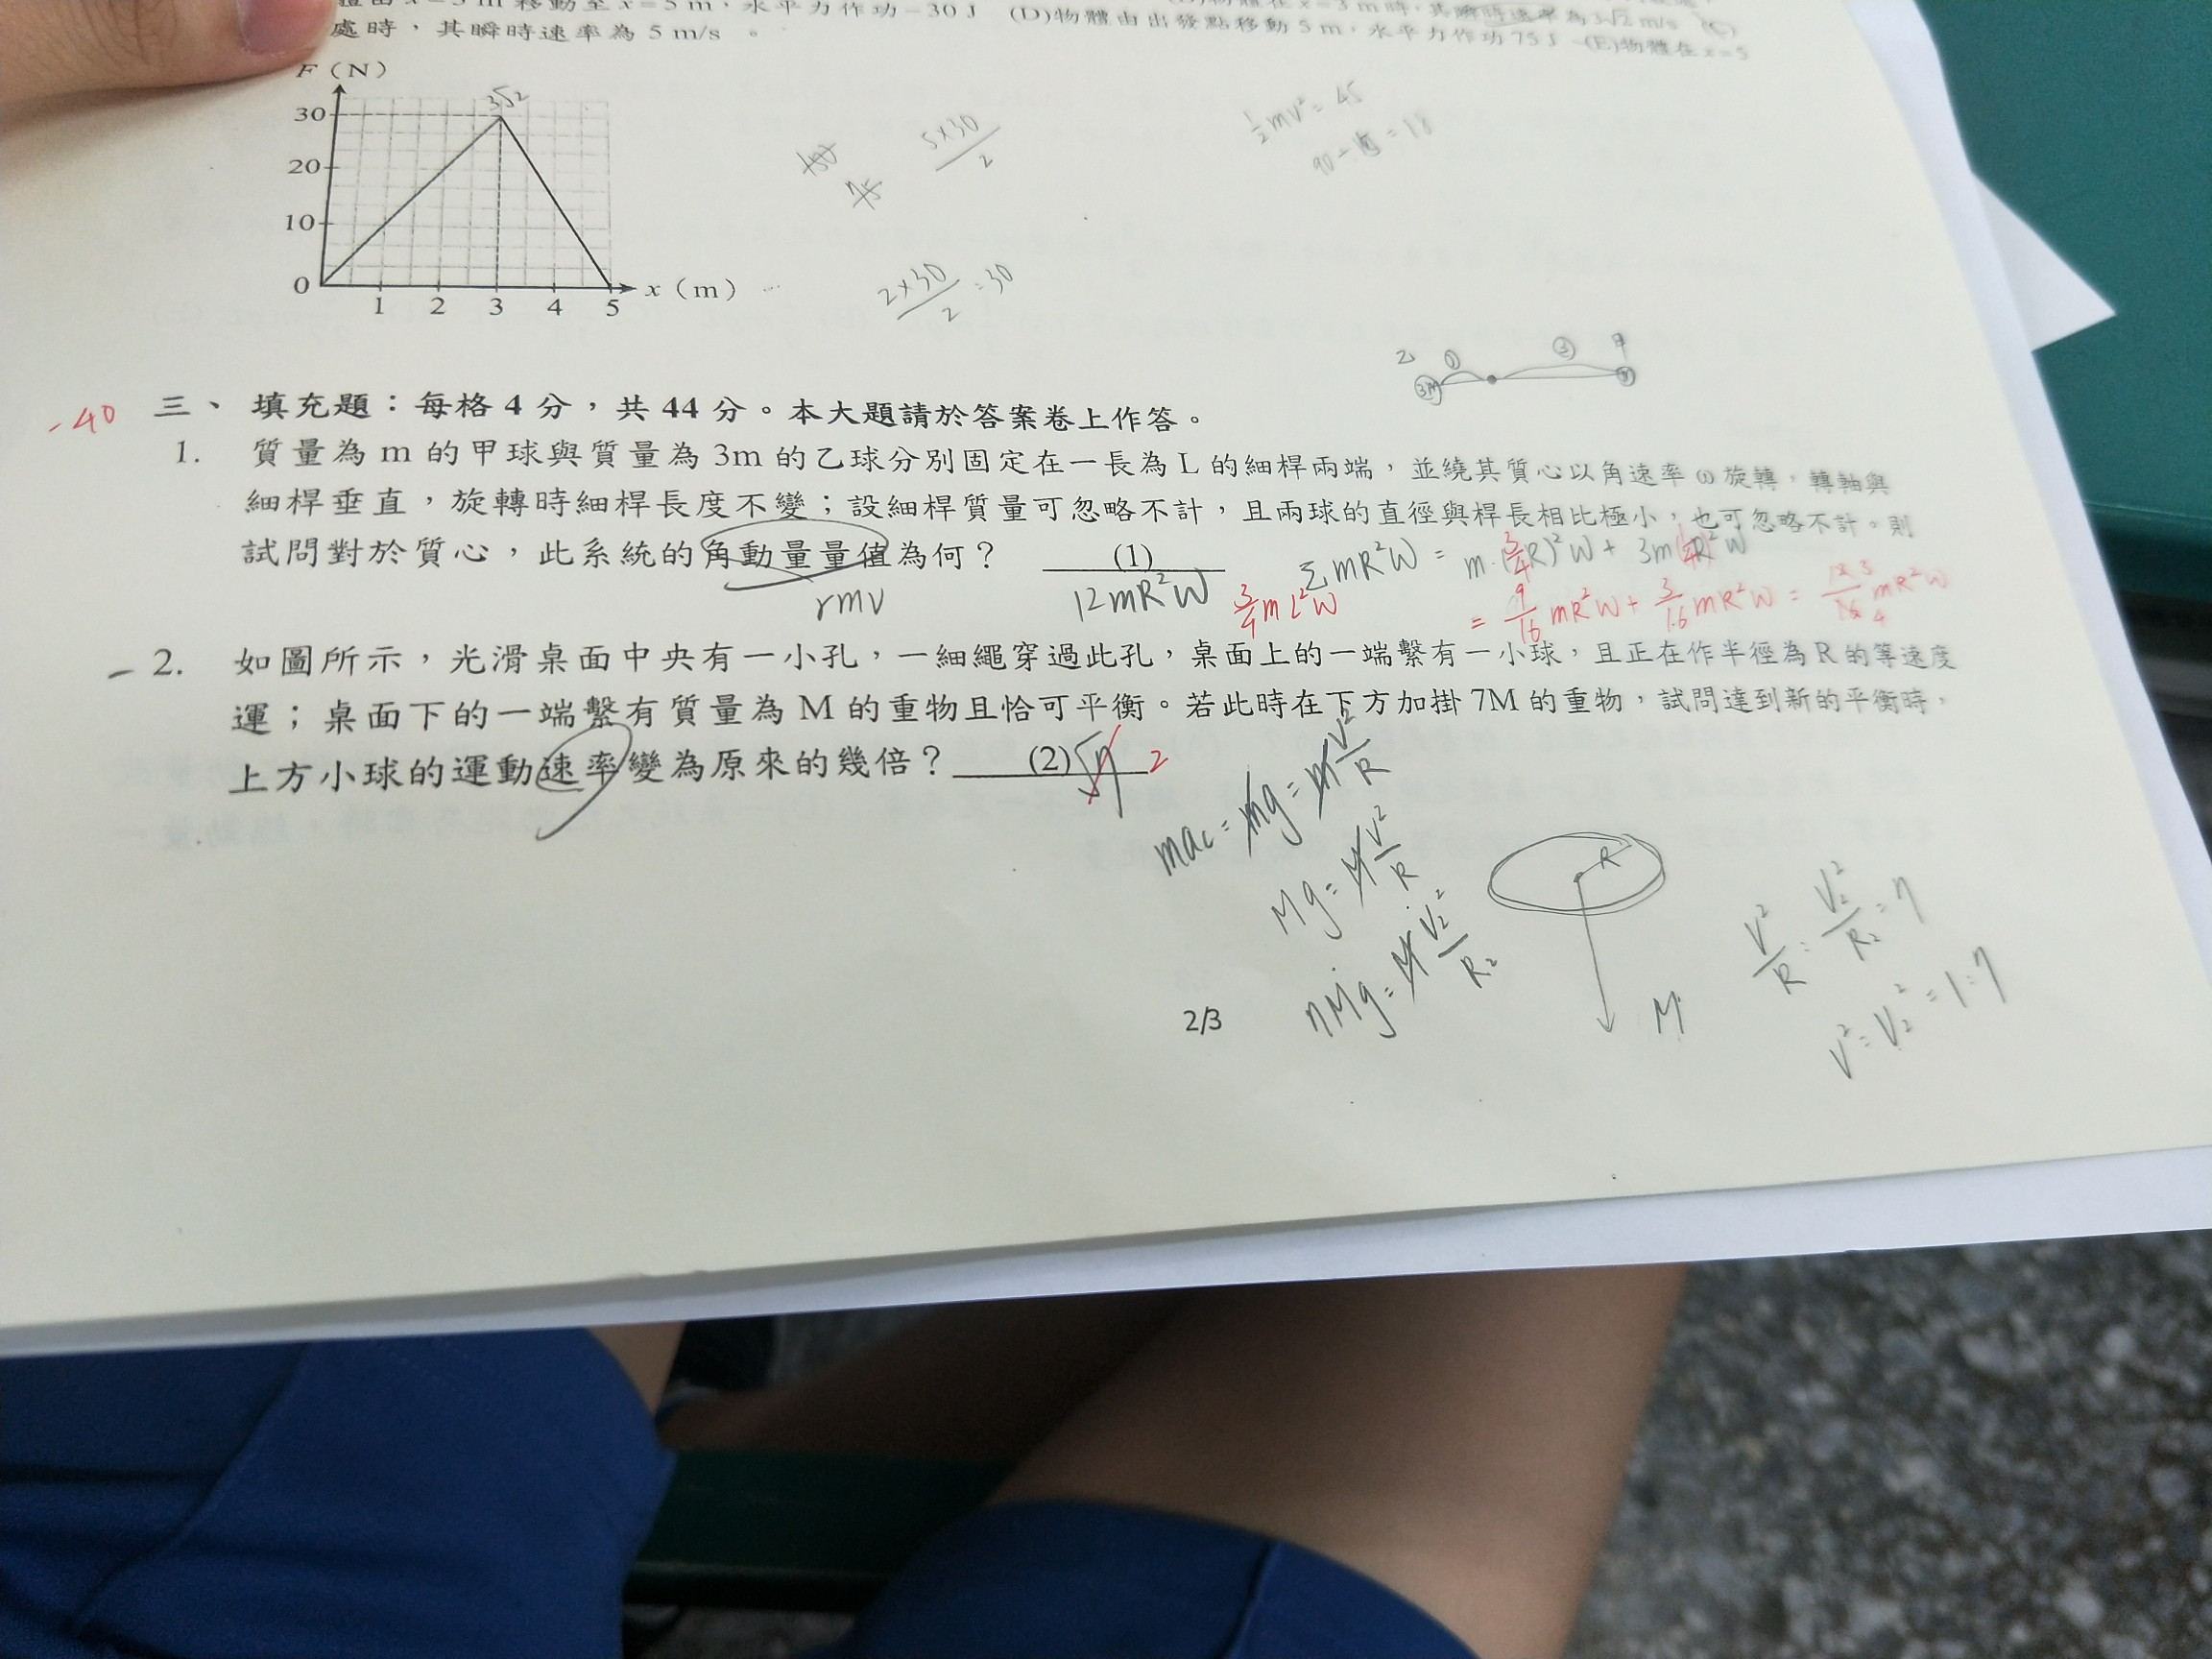 移動至 x=5 m,水平力作功-30 J (D)物體由出發點移動 5 m,水平力作功 75 J (E)物體在 x=5
處時,其瞬時速率為 5 m/s 。
F(N)
3√2
30
20
10
0
1 2 3 4 5
x(m)
75
5×30
2
½mV²=45
2×30
2
=30
乙 ① ③ 甲
3m
-40
三、 填充題:每格 4 分,共 44 分。本大題請於答案卷上作答。
1. 質量為 m 的甲球與質量為 3m 的乙球分別固定在一長為 L 的細桿兩端,並繞其質心以角速率 ω 旋轉,轉軸與
細桿垂直,旋轉時細桿長度不變;設細桿質量可忽略不計,且兩球的直徑與桿長相比極小,也可忽略不計。則
試問對於質心,此系統的角動量量值為何? (1)
rmv
12mR²W
3/4 mL²W
ΣmR²W = m·(3/4R)²W+ 3m
= 9/16 mR²W+ 3/16 mR²W =
2. 如圖所示,光滑桌面中央有一小孔,一細繩穿過此孔,桌面上的一端繫有一小球,且正在作半徑為 R 的等速度
運;桌面下的一端繫有質量為 M 的重物且恰可平衡。若此時在下方加掛 7M 的重物,試問達到新的平衡時,
上方小球的運動速率變為原來的幾倍? (2)√7 2
mac = mg = m V²/R
Mg = M V²/R
7Mg = M V₂²/R₂
R
M
V²/R = V₂²/R₂ = 7
V² = V₂² = 1:7
2/3